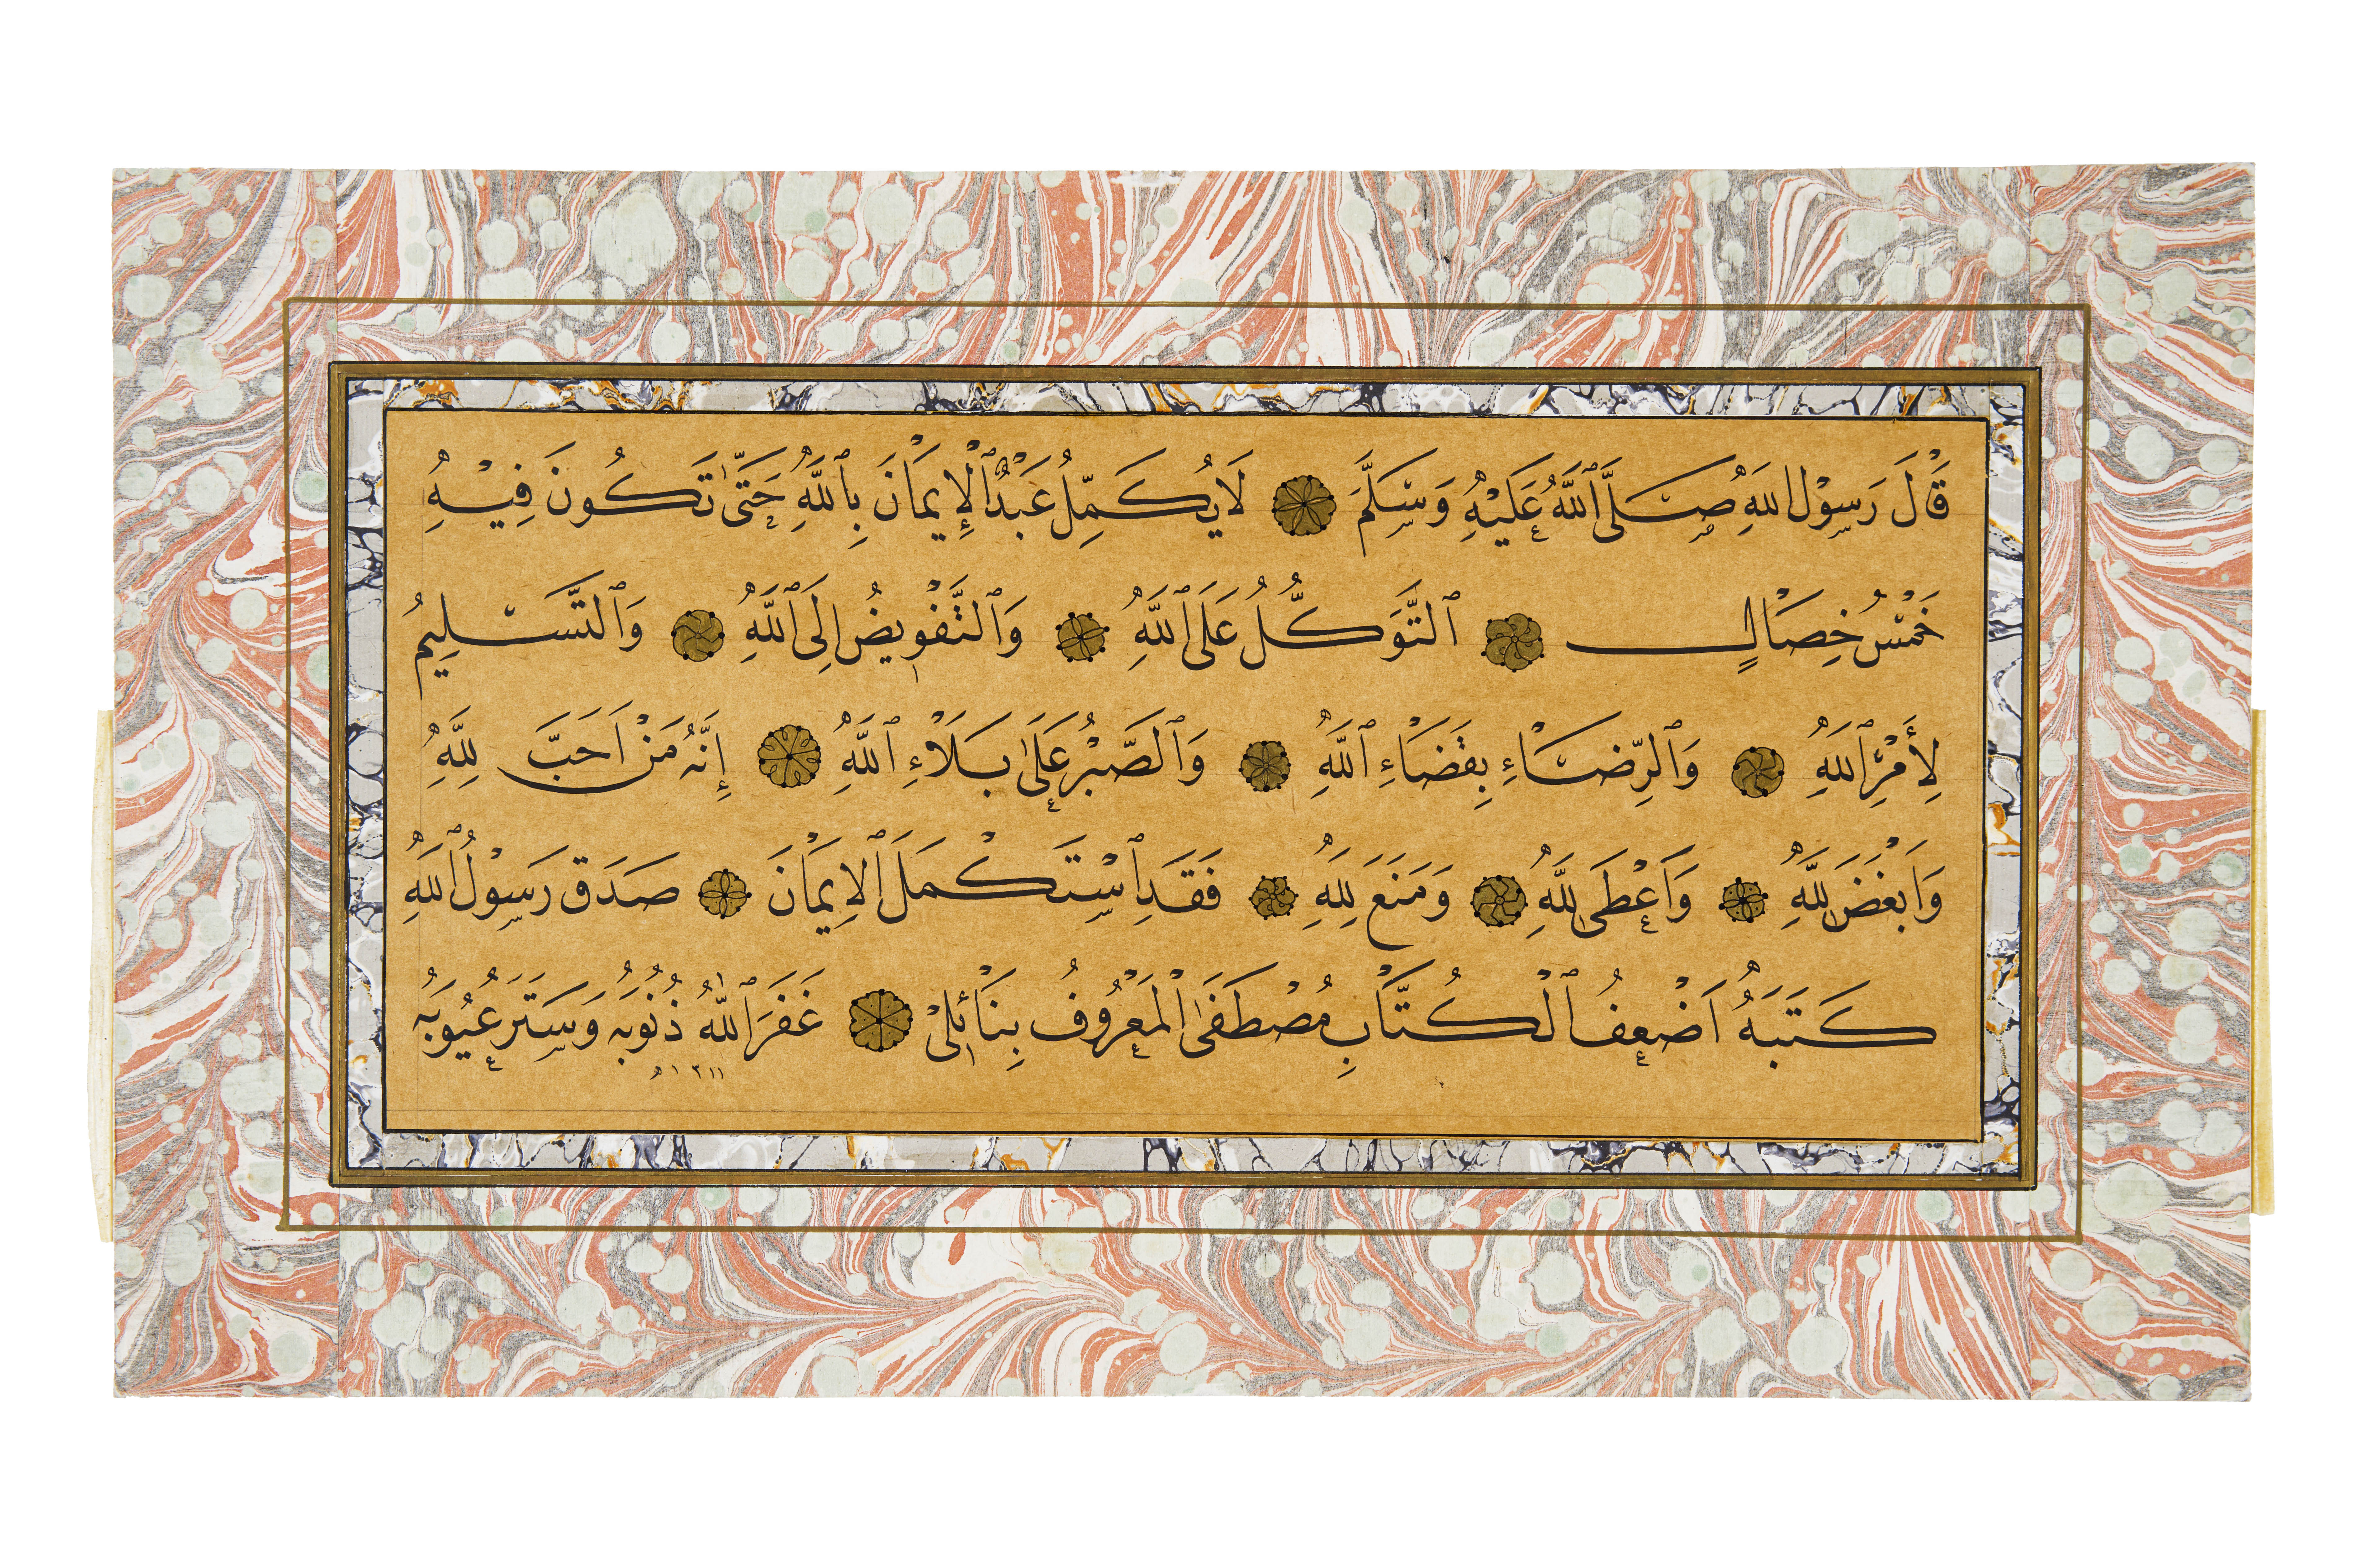 قَالَ رَسُوْلُ اللهِ صَلَّى ٱللَّهُ عَلَيْهِ وَسَلَّمَ لَا يُكَمِّلُ عَبْدٌ ٱلْإِيمَانَ بِٱللَّهِ حَتَّى تَكُونَ فِيْهِ
خَمْسُ خِصَالٍ ٱلتَّوَكُّلُ عَلَى ٱللَّهِ وَٱلتَّفْوِيضُ اِلَى ٱللَّهِ وَٱلتَّسْلِيمُ
لِأَمْرِ ٱللهِ وَٱلرِّضَاءِ بِقَضَاءِ ٱللَّهِ وَٱلصَّبْرُ عَلَى بَلَاءِ ٱللَّهِ إِنَّهُ مَنْ اَحَبَّ لِلَّهِ
وَاَبْغَضَ لِلَّهِ وَاَعْطَى لِلَّهِ وَمَنَعَ لِلَّهِ فَقَدِ ٱسْتَكْمَلَ ٱلْاِيمَانَ صَدَقَ رَسُوْلُ ٱللهِ
كَتَبَهُ اَضْعَفُ ٱلْكُتَّابِ مُصْطَفَى ٱلْمَعْرُوفُ بِنَائِلِيْ غَفَرَ ٱللَّهُ ذُنُوبَهُ وَسَتَرَ عُيُوبَهُ